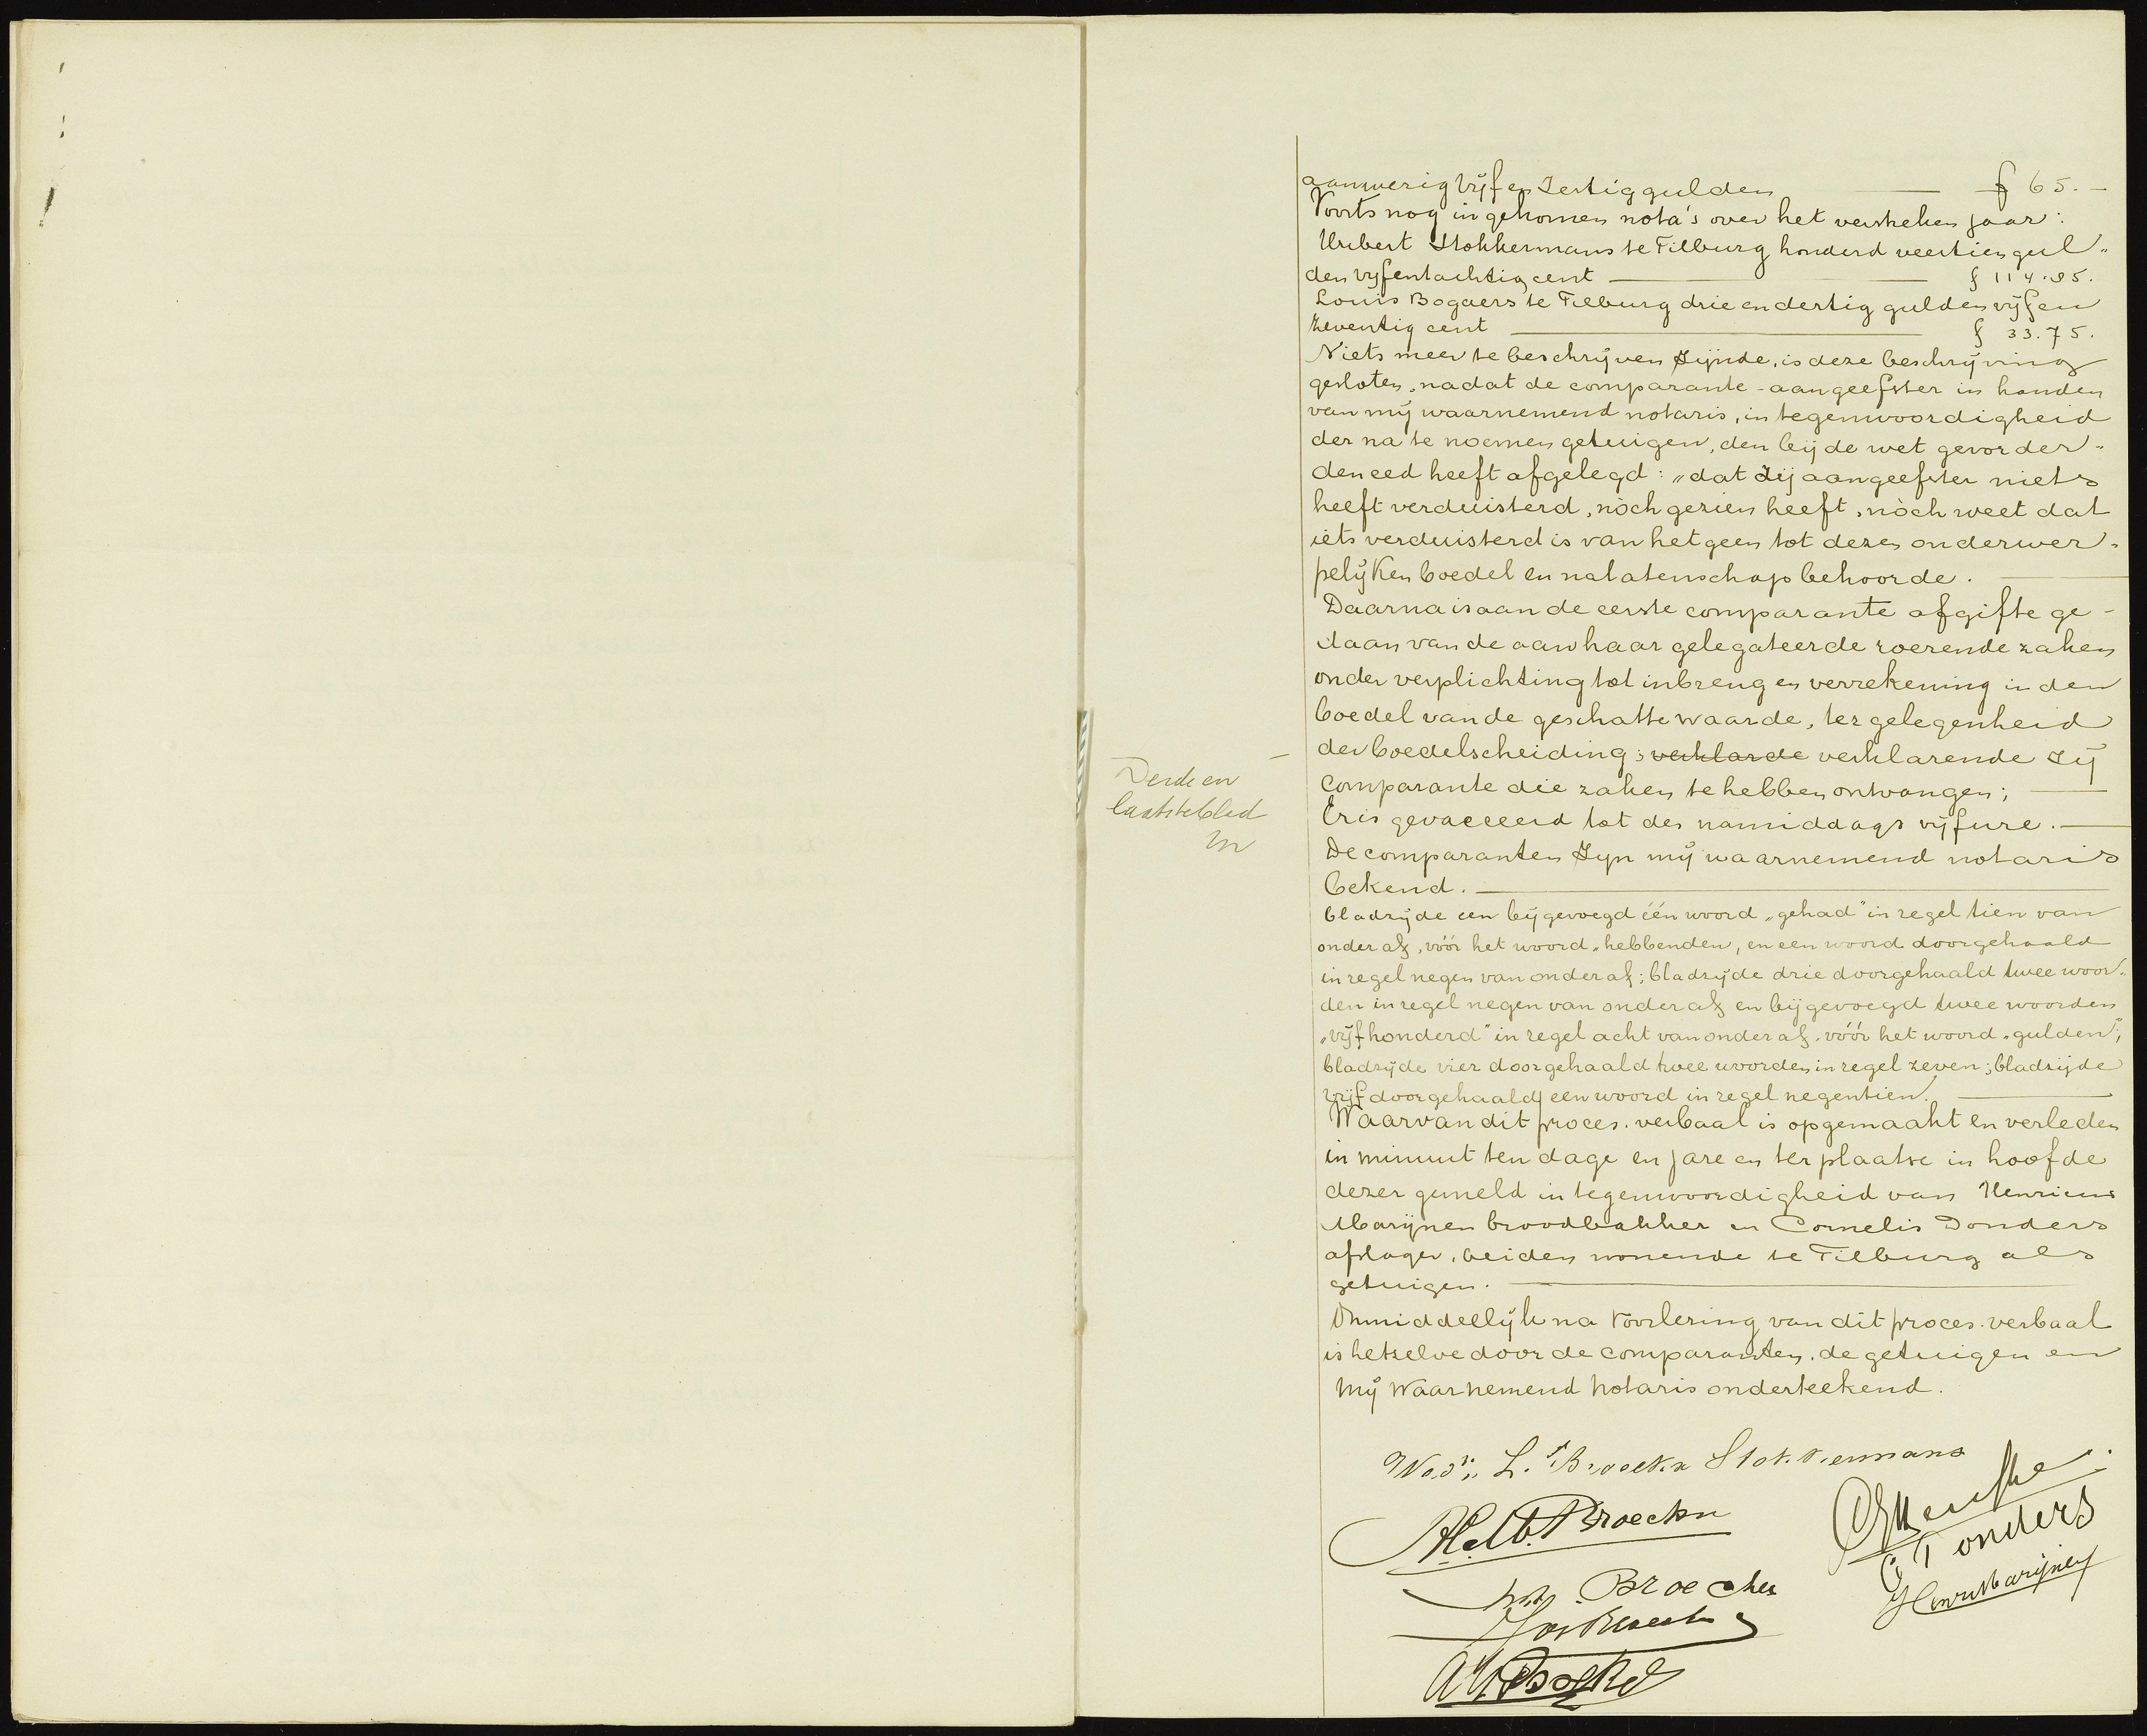 aanwezig vijf en zestig gulden f 65.-
Voorts nog ingekomen nota's over het verstreken jaar:
Hubert Stokkermans te Tilburg honderd veertien gul„
den vijfentachtig cent f 114.85.
Louis Bogaers te Tilburg drie en dertig gulden vijf en
zeventig cent f 33.75.
Niets meer te beschrijven zijnde, is deze beschrijving
gesloten, nadat de comparante-aangeefster in handen
van mij waarnemend notaris, in tegenwoordigheid
der na te noemen getuigen, den bij de wet gevorder„
den eed heeft afgelegd: „dat zij aangeefster niets
heeft verduisterd, nòch gezien heeft, nòch weet dat
iets verduisterd is van hetgeen tot dezen onderwer-
pelijken boedel en nalatenschap behoorde.
Daarna is aan de eerste comparante afgifte ge-
daan van de aan haar gelegateerde roerende zaken
onder verplichting tot inbreng en verrekening in den
boedel van de geschatte waarde, ter gelegenheid
der boedelscheiding; verklarde verklarende zij
comparante die zaken te hebben ontvangen;
Derde en
laatste blad
Er is gevaceerd tot des namiddags vijf ure.
De comparanten zijn mij waarnemend notaris
bekend.
bladzijde een bijgevoegd één woord „gehad" in regel tien van
onder af, vóór het woord „hebbenden, en een woord doorgehaald
in regel negen van onder af; bladzijde drie doorgehaald twee woor„
den in regel negen van onder af en bijgevoegd twee woorden
„vijf honderd" in regel acht van onder af, vóór het woord „gulden";
bladzijde vier doorgehaald twee woorden in regel zeven; bladzijde
vijf doorgehaald een woord in regel negentien.
Waarvan dit proces-verbaal is opgemaakt en verleden
in minuut ten dage en jare en ter plaatse in hoofde
dezer gemeld in tegenwoordigheid van Henricus
Marijnen broodbakker en Cornelis Donders
afslager, beiden wonende te Tilburg als
getuigen.
Onmiddellijk na voorlezing van dit proces-verbaal
is hetzelve door de comparanten, de getuigen en
mij waarnemend notaris onderteekend.
Wed. L. Broeckx Stokkermans
Broeckx
C Donders
Broeckx
Henri Marijnen